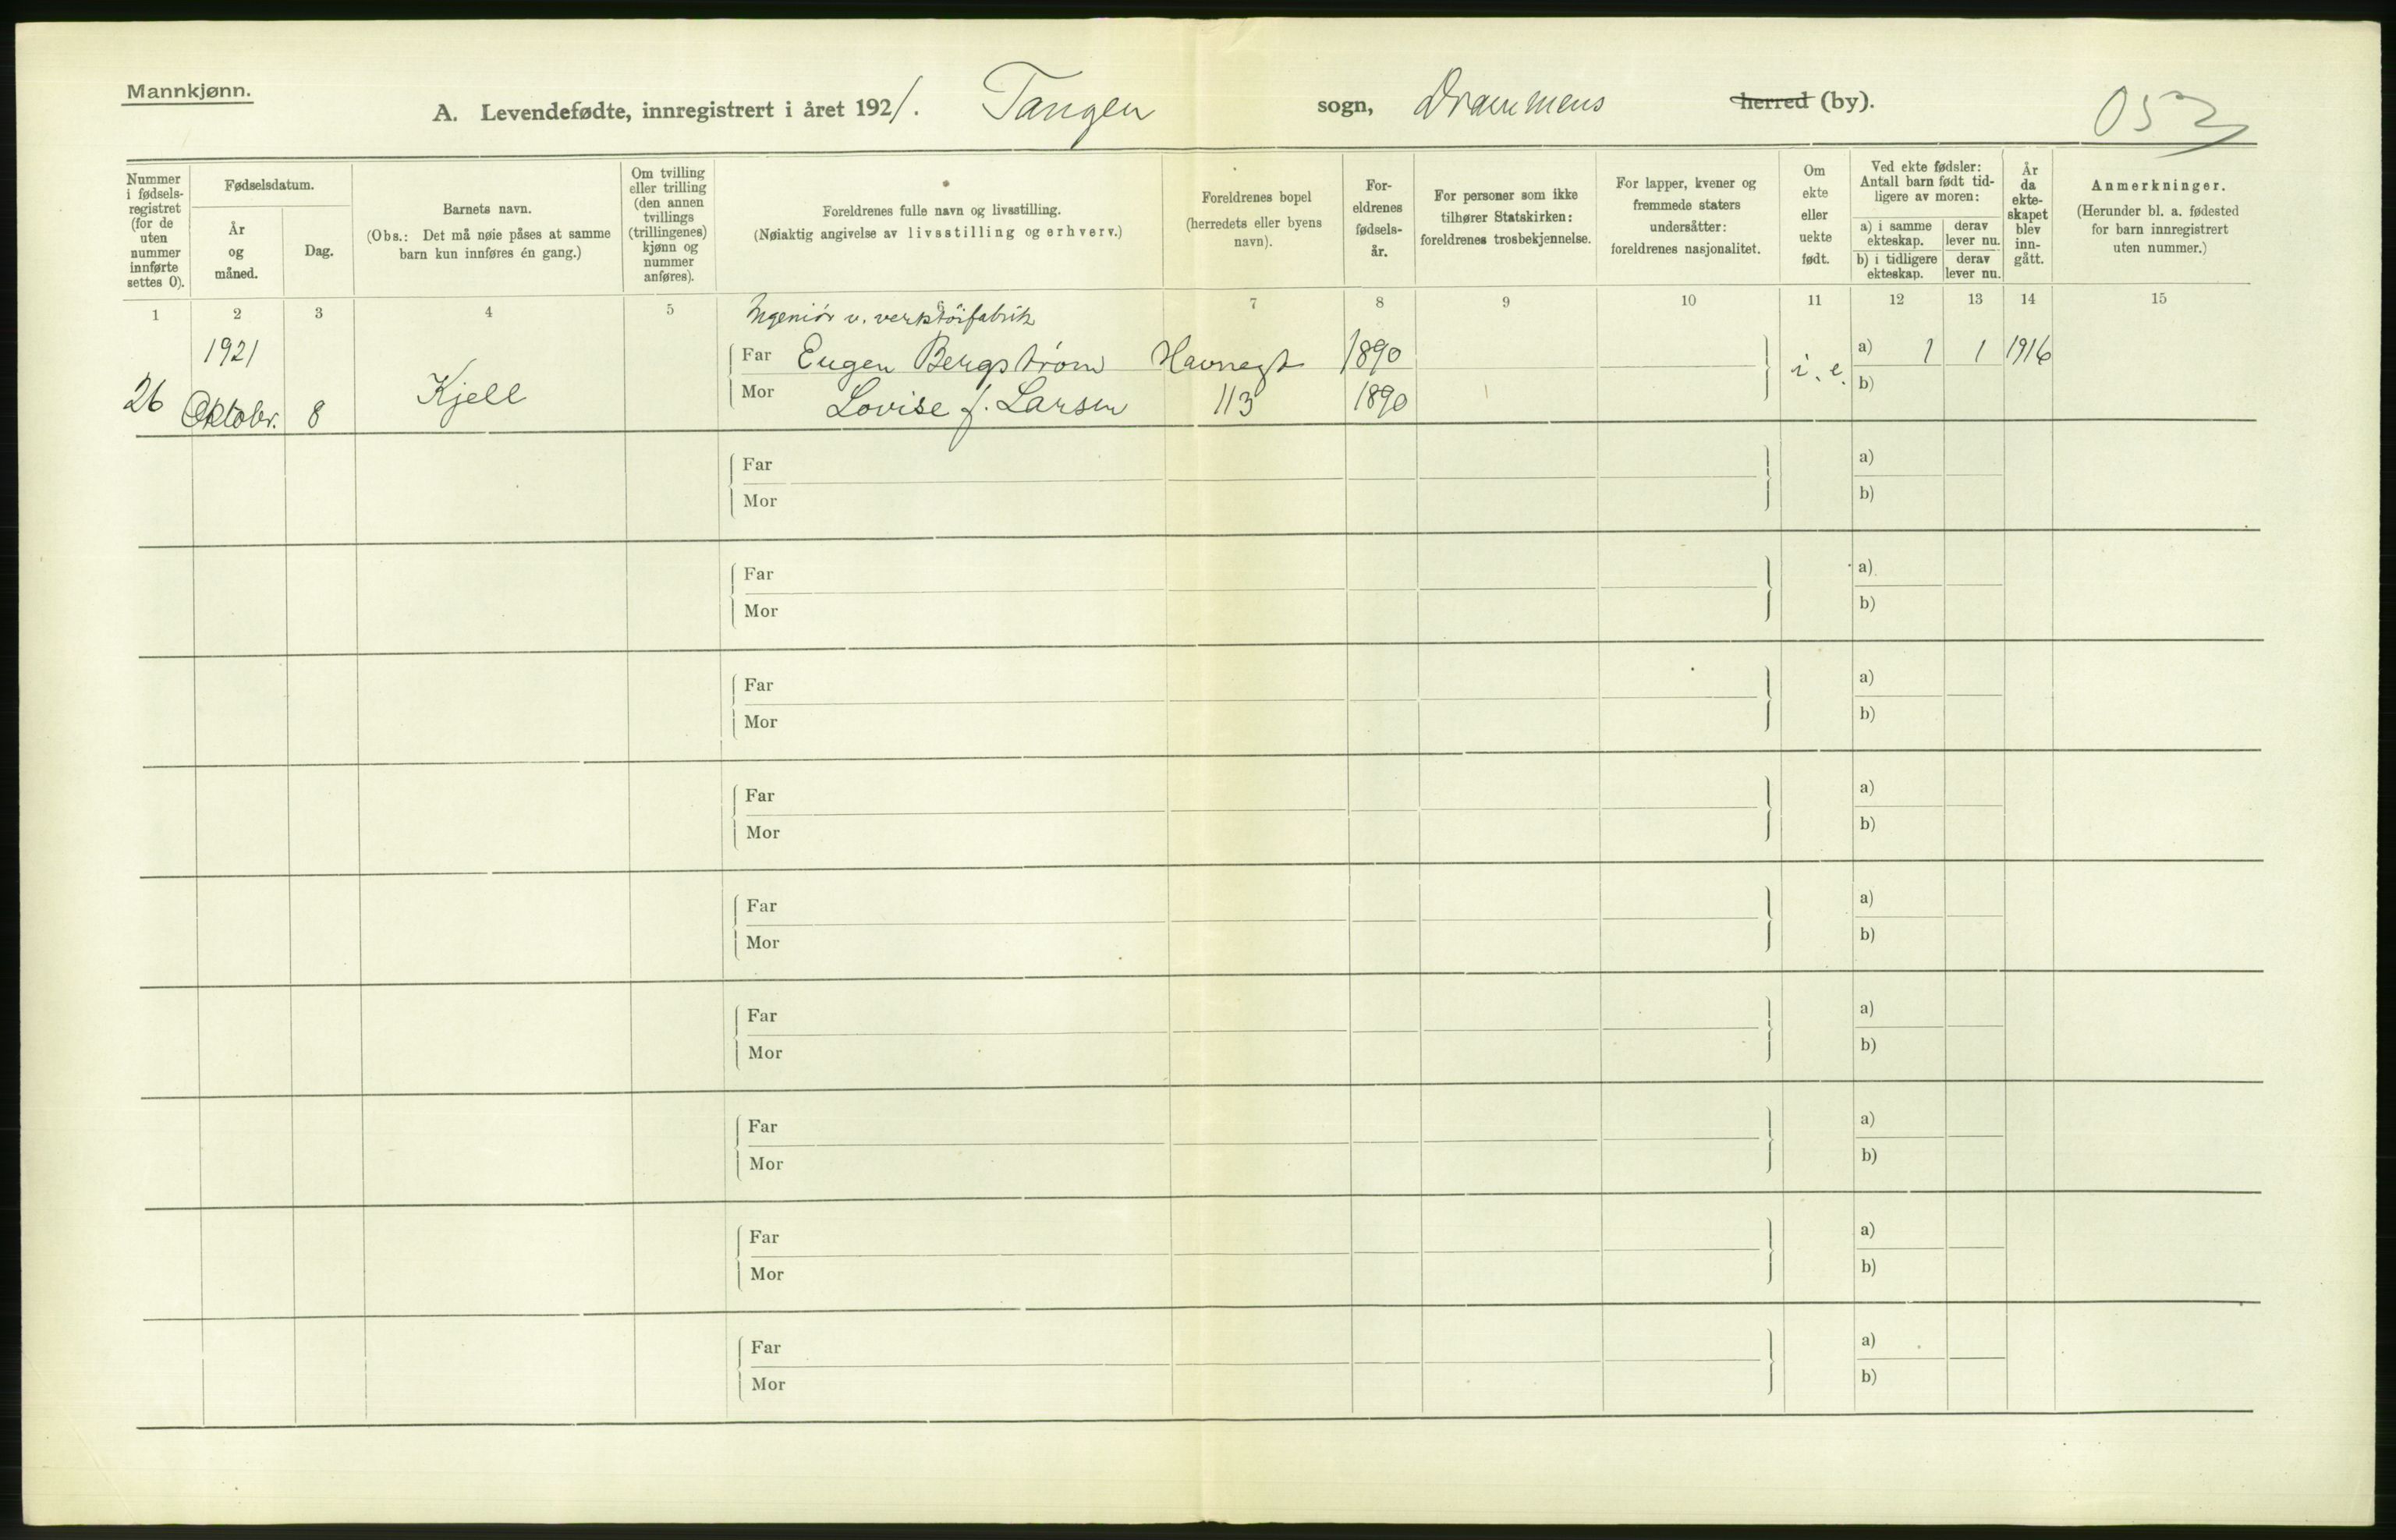 Mannkjønn.
A. Levendefødte, innregistrert i året 1921. Tangen sogn, Drammens herred (by).
053
Nummer i fødsels-registret (for de uten nummer innførte settes 0).
Fødselsdatum.
År og måned.
Dag.
Barnets navn.
(Obs.: Det må nøie påses at samme barn kun innføres én gang.)
Om tvilling eller trilling (den annen tvillings (trillingenes) kjønn og nummer anføres).
Foreldrenes fulle navn og livsstilling.
(Nøiaktig angivelse av livsstilling og erhverv.)
Foreldrenes bopel (herredets eller byens navn).
For-eldrenes fødsels-år.
For personer som ikke tilhører Statskirken: foreldrenes trosbekjennelse.
For lapper, kvener og fremmede staters undersåtter: foreldrenes nasjonalitet.
Om ekte eller uekte født.
Ved ekte fødsler: Antall barn født tid-ligere av moren:
a) i samme ekteskap.
derav lever nu.
b) i tidligere ekteskap.
derav lever nu.
År da ekte-skapet blev inn-gått.
Anmerkninger.
(Herunder bl. a. fødested for barn innregistrert uten nummer.)
1 2 3 4 5 6 7 8 9 10 11 12 13 14 15
Ingeniør v. verktöifabrik
1921
Far Eugen Bergstrøm Havnegt 1890 i. e. a) 1 1 1916
26 Oktobr. 8 Kjell
Mor Lovise f. Larsen 113 1890 b)
Far a)
Mor b)
Far a)
Mor b)
Far a)
Mor b)
Far a)
Mor b)
Far a)
Mor b)
Far a)
Mor b)
Far a)
Mor b)
Far a)
Mor b)
Far a)
Mor b)